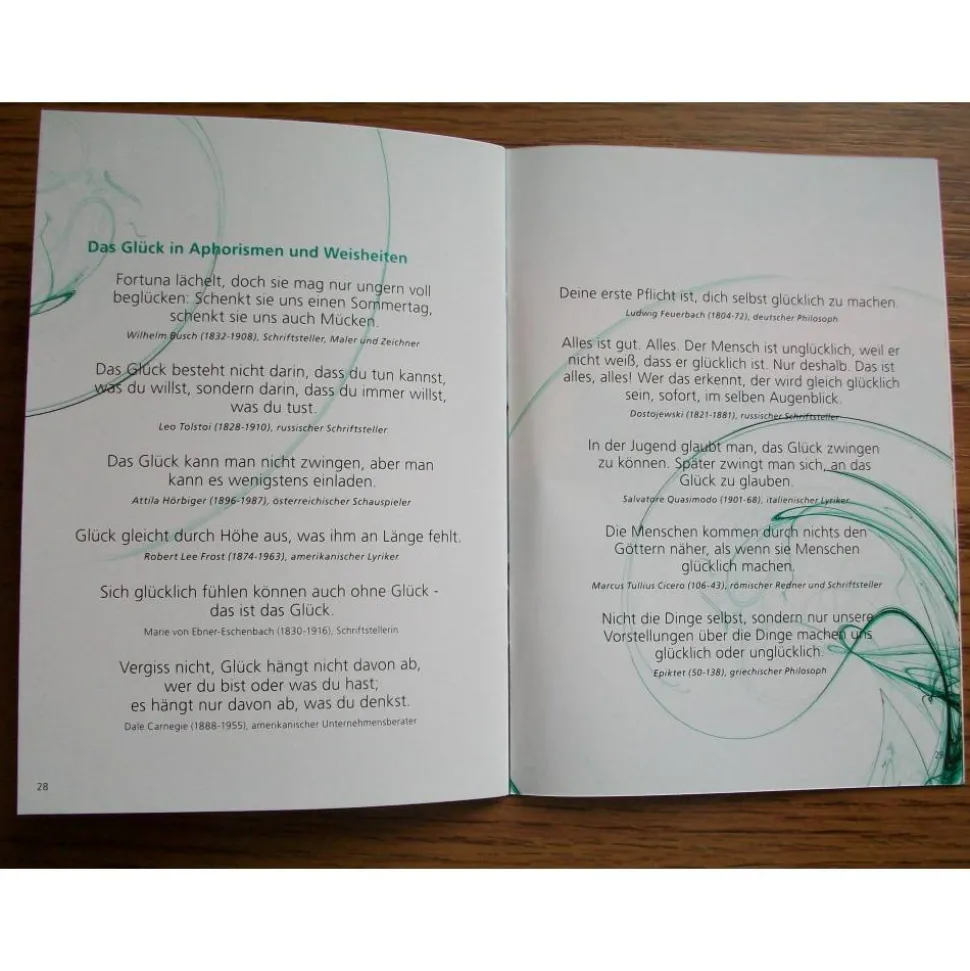 Das Glück in Aphorismen und Weisheiten
Fortuna lächelt, doch sie mag nur ungern voll
beglücken: Schenkt sie uns einen Sommertag,
schenkt sie uns auch Mücken.
Wilhelm Busch (1832-1908), Schriftsteller, Maler und Zeichner
Das Glück besteht nicht darin, dass du tun kannst,
was du willst, sondern darin, dass du immer willst,
was du tust.
Leo Tolstoi (1828-1910), russischer Schriftsteller
Das Glück kann man nicht zwingen, aber man
kann es wenigstens einladen.
Attila Hörbiger (1896-1987), österreichischer Schauspieler
Glück gleicht durch Höhe aus, was ihm an Länge fehlt.
Robert Lee Frost (1874-1963), amerikanischer Lyriker
Sich glücklich fühlen können auch ohne Glück -
das ist das Glück.
Marie von Ebner-Eschenbach (1830-1916), Schriftstellerin
Vergiss nicht, Glück hängt nicht davon ab,
wer du bist oder was du hast;
es hängt nur davon ab, was du denkst.
Dale Carnegie (1888-1955), amerikanischer Unternehmensberater
28
Deine erste Pflicht ist, dich selbst glücklich zu machen.
Ludwig Feuerbach (1804-72), deutscher Philosoph
Alles ist gut. Alles. Der Mensch ist unglücklich, weil er
nicht weiß, dass er glücklich ist. Nur deshalb. Das ist
alles, alles! Wer das erkennt, der wird gleich glücklich
sein, sofort, im selben Augenblick.
Dostojewski (1821-1881), russischer Schriftsteller
In der Jugend glaubt man, das Glück zwingen
zu können. Später zwingt man sich, an das
Glück zu glauben.
Salvatore Quasimodo (1901-68), italienischer Lyriker
Die Menschen kommen durch nichts den
Göttern näher, als wenn sie Menschen
glücklich machen.
Marcus Tullius Cicero (106-43), römischer Redner und Schriftsteller
Nicht die Dinge selbst, sondern nur unsere
Vorstellungen über die Dinge machen uns
glücklich oder unglücklich.
Epiktet (50-138), griechischer Philosoph
29